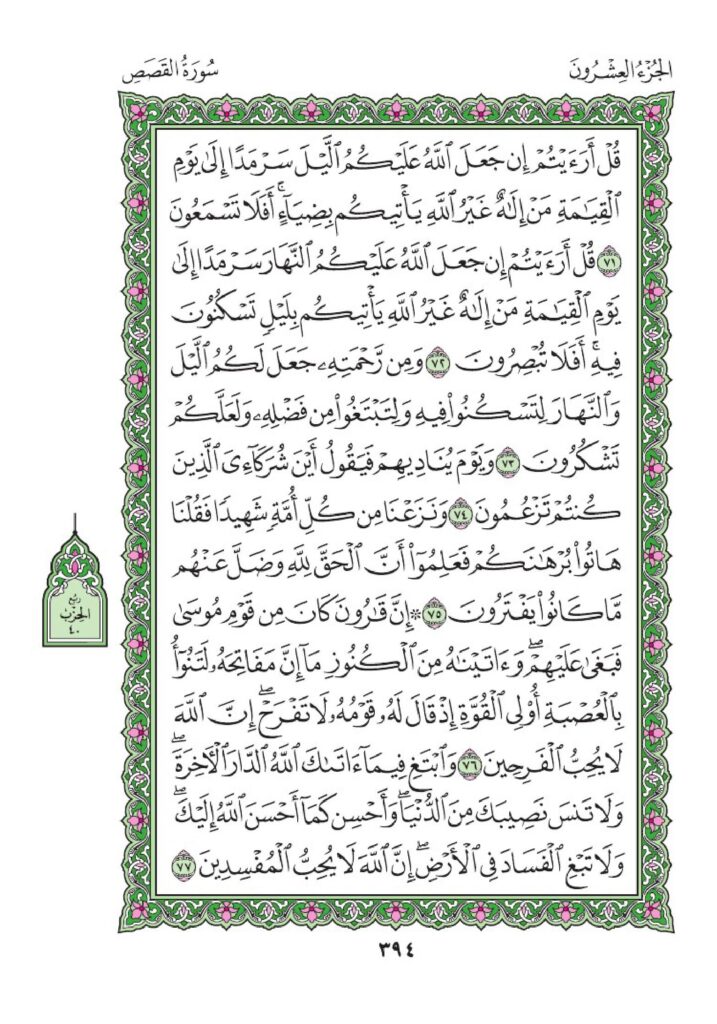 الجُزْءُ العِشْرُونَ
سُورَةُ القَصَصِ
قُلْ أَرَءَيْتُمْ إِن جَعَلَ ٱللَّهُ عَلَيْكُمُ ٱلَّيْلَ سَرْمَدًا إِلَىٰ يَوْمِ
ٱلْقِيَٰمَةِ مَنْ إِلَٰهٌ غَيْرُ ٱللَّهِ يَأْتِيكُم بِضِيَآءٍ ۚ أَفَلَا تَسْمَعُونَ
٧١ قُلْ أَرَءَيْتُمْ إِن جَعَلَ ٱللَّهُ عَلَيْكُمُ ٱلنَّهَارَ سَرْمَدًا إِلَىٰ
يَوْمِ ٱلْقِيَٰمَةِ مَنْ إِلَٰهٌ غَيْرُ ٱللَّهِ يَأْتِيكُم بِلَيْلٍ تَسْكُنُونَ
فِيهِ ۚ أَفَلَا تُبْصِرُونَ ٧٢ وَمِن رَّحْمَتِهِۦ جَعَلَ لَكُمُ ٱلَّيْلَ
وَٱلنَّهَارَ لِتَسْكُنُوا۟ فِيهِ وَلِتَبْتَغُوا۟ مِن فَضْلِهِۦ وَلَعَلَّكُمْ
تَشْكُرُونَ ٧٣ وَيَوْمَ يُنَادِيهِمْ فَيَقُولُ أَيْنَ شُرَكَآءِىَ ٱلَّذِينَ
كُنتُمْ تَزْعُمُونَ ٧٤ وَنَزَعْنَا مِن كُلِّ أُمَّةٍ شَهِيدًا فَقُلْنَا
هَاتُوا۟ بُرْهَٰنَكُمْ فَعَلِمُوٓا۟ أَنَّ ٱلْحَقَّ لِلَّهِ وَضَلَّ عَنْهُم
مَّا كَانُوا۟ يَفْتَرُونَ ٧٥ ۞ إِنَّ قَٰرُونَ كَانَ مِن قَوْمِ مُوسَىٰ
فَبَغَىٰ عَلَيْهِمْ ۖ وَءَاتَيْنَٰهُ مِنَ ٱلْكُنُوزِ مَآ إِنَّ مَفَاتِحَهُۥ لَتَنُوٓأُ
بِٱلْعُصْبَةِ أُو۟لِى ٱلْقُوَّةِ إِذْ قَالَ لَهُۥ قَوْمُهُۥ لَا تَفْرَحْ ۖ إِنَّ ٱللَّهَ
لَا يُحِبُّ ٱلْفَرِحِينَ ٧٦ وَٱبْتَغِ فِيمَآ ءَاتَىٰكَ ٱللَّهُ ٱلدَّارَ ٱلْءَاخِرَةَ ۖ
وَلَا تَنسَ نَصِيبَكَ مِنَ ٱلدُّنْيَا ۖ وَأَحْسِن كَمَآ أَحْسَنَ ٱللَّهُ إِلَيْكَ ۖ
وَلَا تَبْغِ ٱلْفَسَادَ فِى ٱلْأَرْضِ ۖ إِنَّ ٱللَّهَ لَا يُحِبُّ ٱلْمُفْسِدِينَ ٧٧
رُبْع
الحِزْبِ
٤٠
٣٩٤